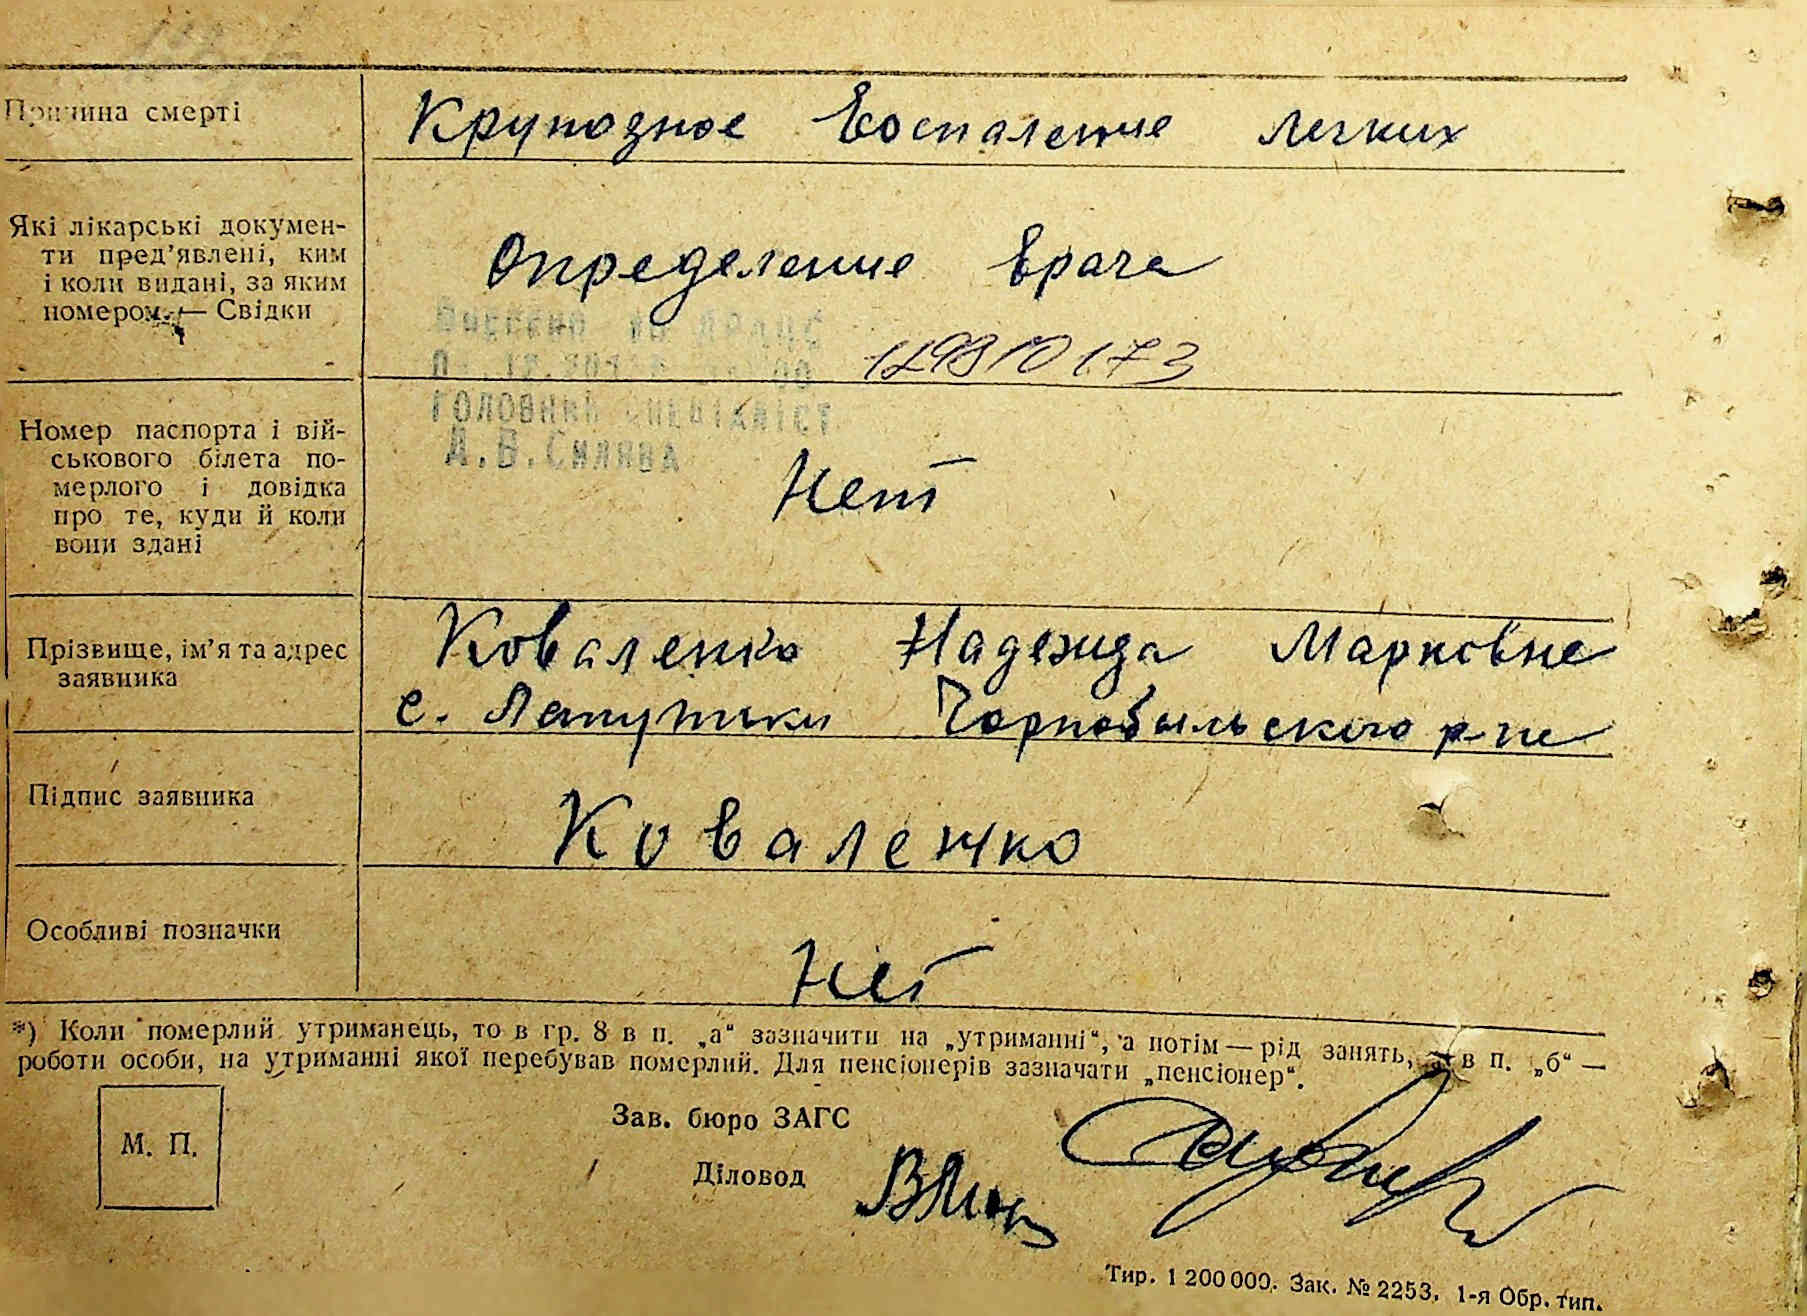 Причина смерті
Крупозное Воспаление легких
Які лікарські докумен-
ти пред’явлені, ким
і коли видані, за яким
номером. — Свідки
Определение врача
129810173
ГОЛОВНИЙ СПЕЦІАЛІСТ
Номер паспорта і вій-
ськового білета по-
мерлого і довідка
про те, куди й коли
вони здані
Нет
Прізвище, ім’я та адрес
заявника
Коваленко Надежда Марковне
с. Чорнобыльского р-не
Підпис заявника
Коваленко
Особливі позначки
Нет
*) Коли померлий утриманець, то в гр. 8 в п. „а“ зазначити на „утриманні“, а потім — рід занять, а в п. „б“ —
роботи особи, на утриманні якої перебував померлий. Для пенсіонерів зазначати „пенсіонер“.
М. П.
Зав. бюро ЗАГС
Діловод
Тир. 1 200 000. Зак. № 2253. 1-я Обр. тип.